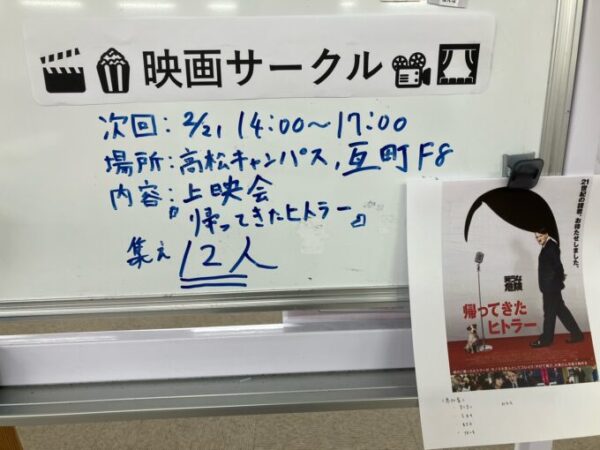 映画サークル
次回：2/21 14:00〜17:00
場所：高松キャンパス, 亙町F8
内容：上映会
『帰ってきたヒトラー』
集え 12人
21世紀の諸君、お待たせしました。
帰ってきた
ヒトラー